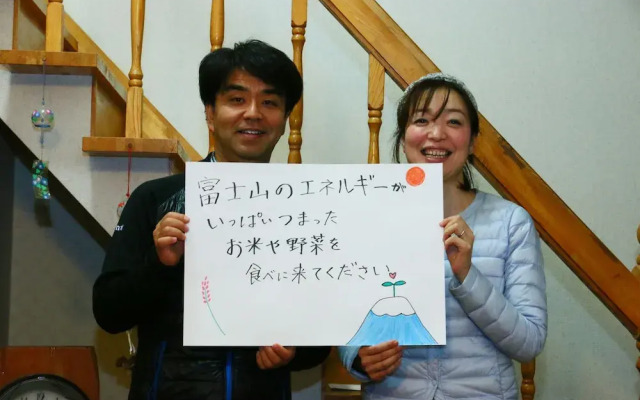 富士山のエネルギーが
いっぱいつまった
お米や野菜を
食べに来てください